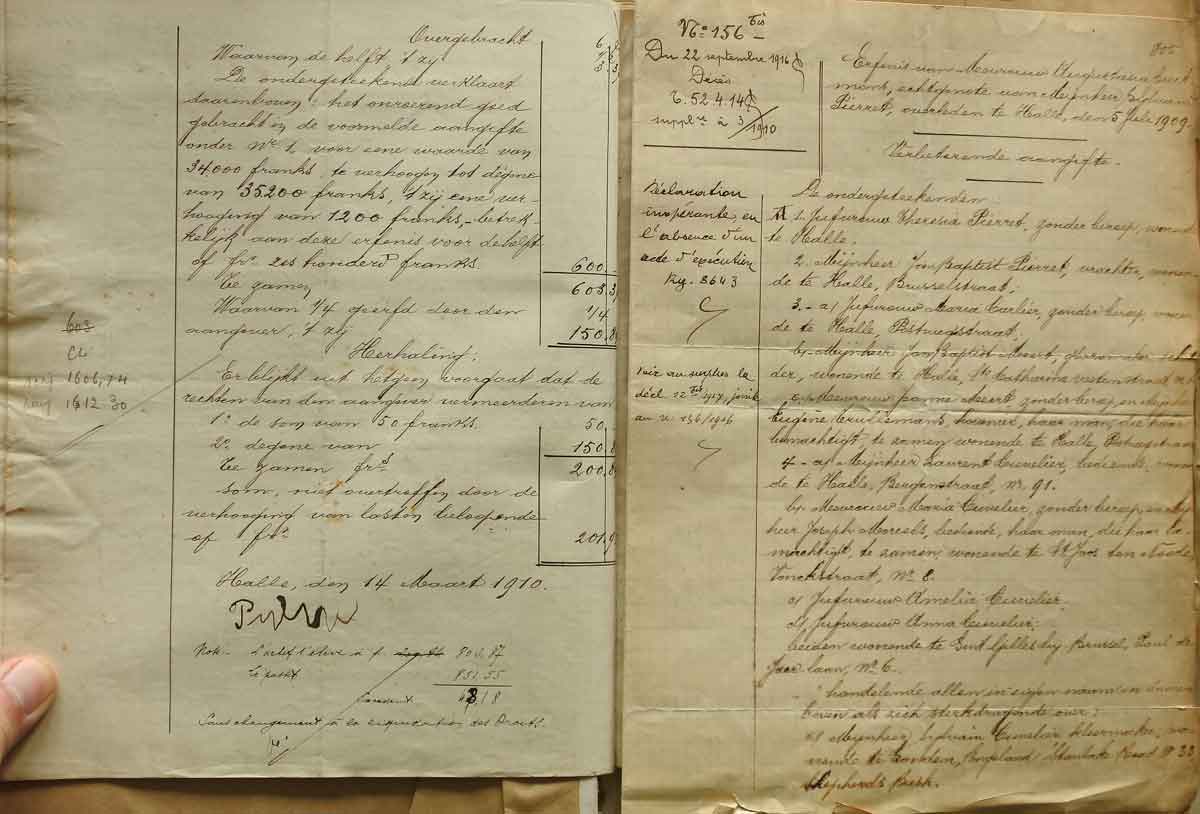 Overgebracht
Waarvan de helft 't zij
De ondergeteekende verklaart
daarenboven: het onroerend goed
gebracht in de voormelde aangifte
onder Nr 1, voor eene waarde van
34.000 franks, te verhoogen tot degene
van 35200 franks, 't zij eene ver-
hooging van 1200 franks, - betrek-
kelijk aan deze erfenis voor de helft
of frs zes honderd franks. 600.-
Te gamen 603.3
Waarvan 1/4 geërfd door den 1/4
aangever, 't zij 150.8
Herhaling.
Er blijkt uit hetgeen voorgaat dat de
rechten van den aangever vermeerderen van
1° de som van 50 franks. 50
2° degene van 150.8
Te gamen frs 200.8
som, niet overtroffen door de
verhooging van lasten beloopende
of frs 201.9
Halle, den 14 Maart 1910.
603
1606,74
1612.30
Nota - L'actif s'élève à f. 803.87
Le passif 851,55
Sans changement à la liquidation des Droits.
No 156 bis
Du 22 septembre 1916
Décès
T. 52 4. 14
suppl. à 3/1910
Déclaration
inopérante, en
l'absence d'un
acte d'exécution
Rg. 8643
Voir au surplus la
décl. 12 1917, jointe
au n° 156/1916
Erfenis van Mevrouw
mont, echtgenote van Mijnheer Sylvain
Pierret, overleden te Halle, den 5 Juli 1909.
Verbeterende aangifte.
De ondergeteekenden
A 1. Jufvrouw Theresia Pierret, zonder beroep, wonende
te Halle.
2. Mijnheer Jan Baptist Pierret, wonen
de te Halle, Brusselstraat;
3. - a) Jufvrouw Maria Carlier, zonder beroep, wonen
de te Halle, Postweegstraat;
b) Mijnheer Jan Baptist Meert,
der, wonende te Halle, Ste Catharina vestenstraat
c) Mevrouw Jeanne Meert zonder beroep, en Mijnheer
Eugène Ceulemans, haar man, die haar
bemachtigt, te samen wonende te Halle,
4 - a) Mijnheer Laurent Cuvelier, bediende, wonen
de te Halle, Bergenstraat, Nr. 91.
b) Mevrouw Maria Cuvelier, zonder beroep, en Mijn
heer Joseph Morsels, bediende, haar man, die haar be
machtigt, te samen wonende te St Joos ten Noode
Vonckstraat, Nr 8.
c) Jufvrouw Amelia Cuvelier
d) Jufvrouw Anna Cuvelier;
beiden wonende te Sint Gillis bij Brussel, Paul de
Jaer laan, Nr 6.
handelende allen in eigen naam en daaren
boven als zich sterkdragende over:
a) Mijnheer Sylvain Cuvelier kleermaker, wo
nende te Londen, Engeland, Road No 33,
Shepherds Bush.